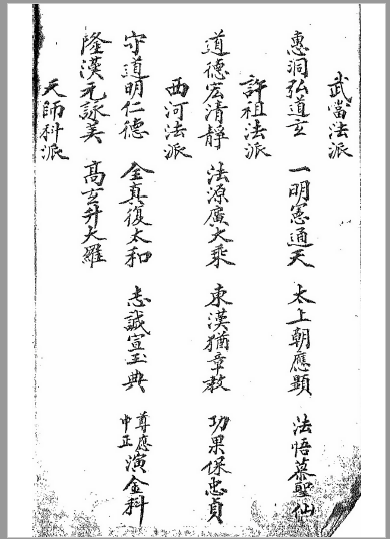 武當法派
惠洞弘道玄 一明憲通天 太上朝應顯 法悟慕聖仙
許祖法派
道德宏清靜 法源廣大乘 東漢猶章教 功果保忠貞
西河法派
守道明仁德 全真復太和 志誠宣玉典 尊應中正演金科
隆漢元詠美 高玄升大羅
天師科派